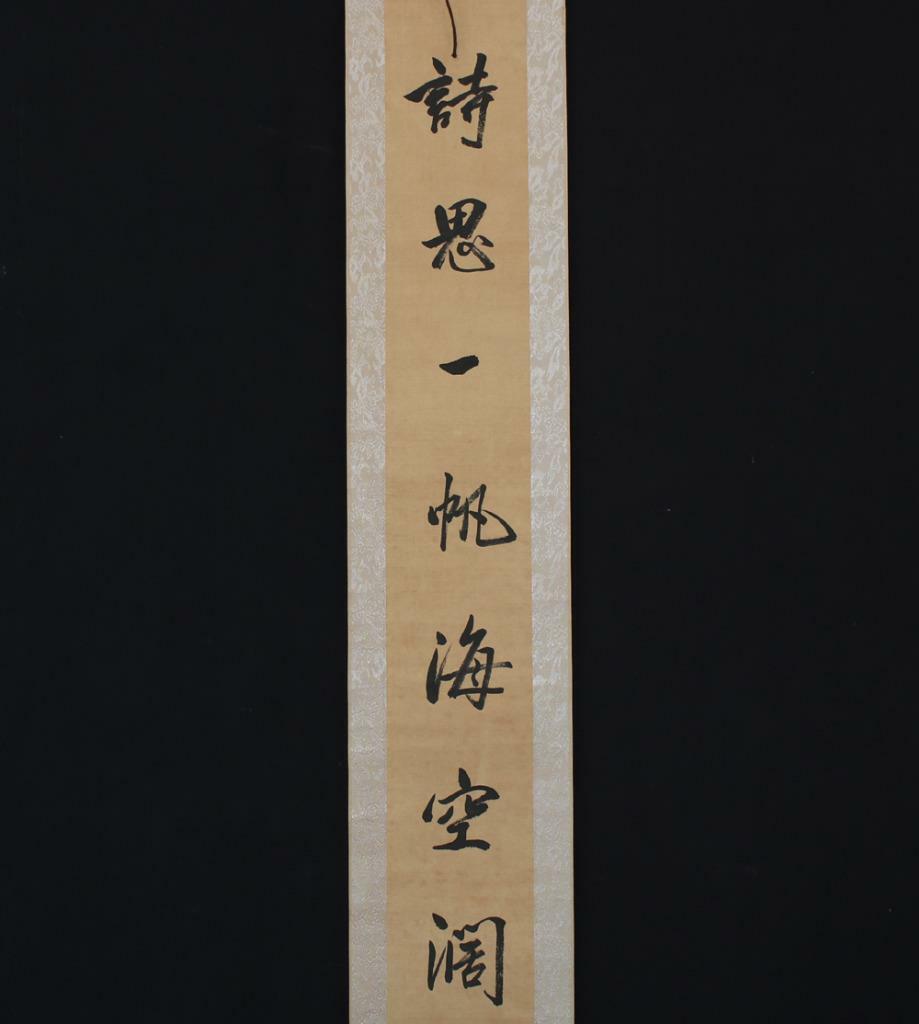 詩思一帆海空濶